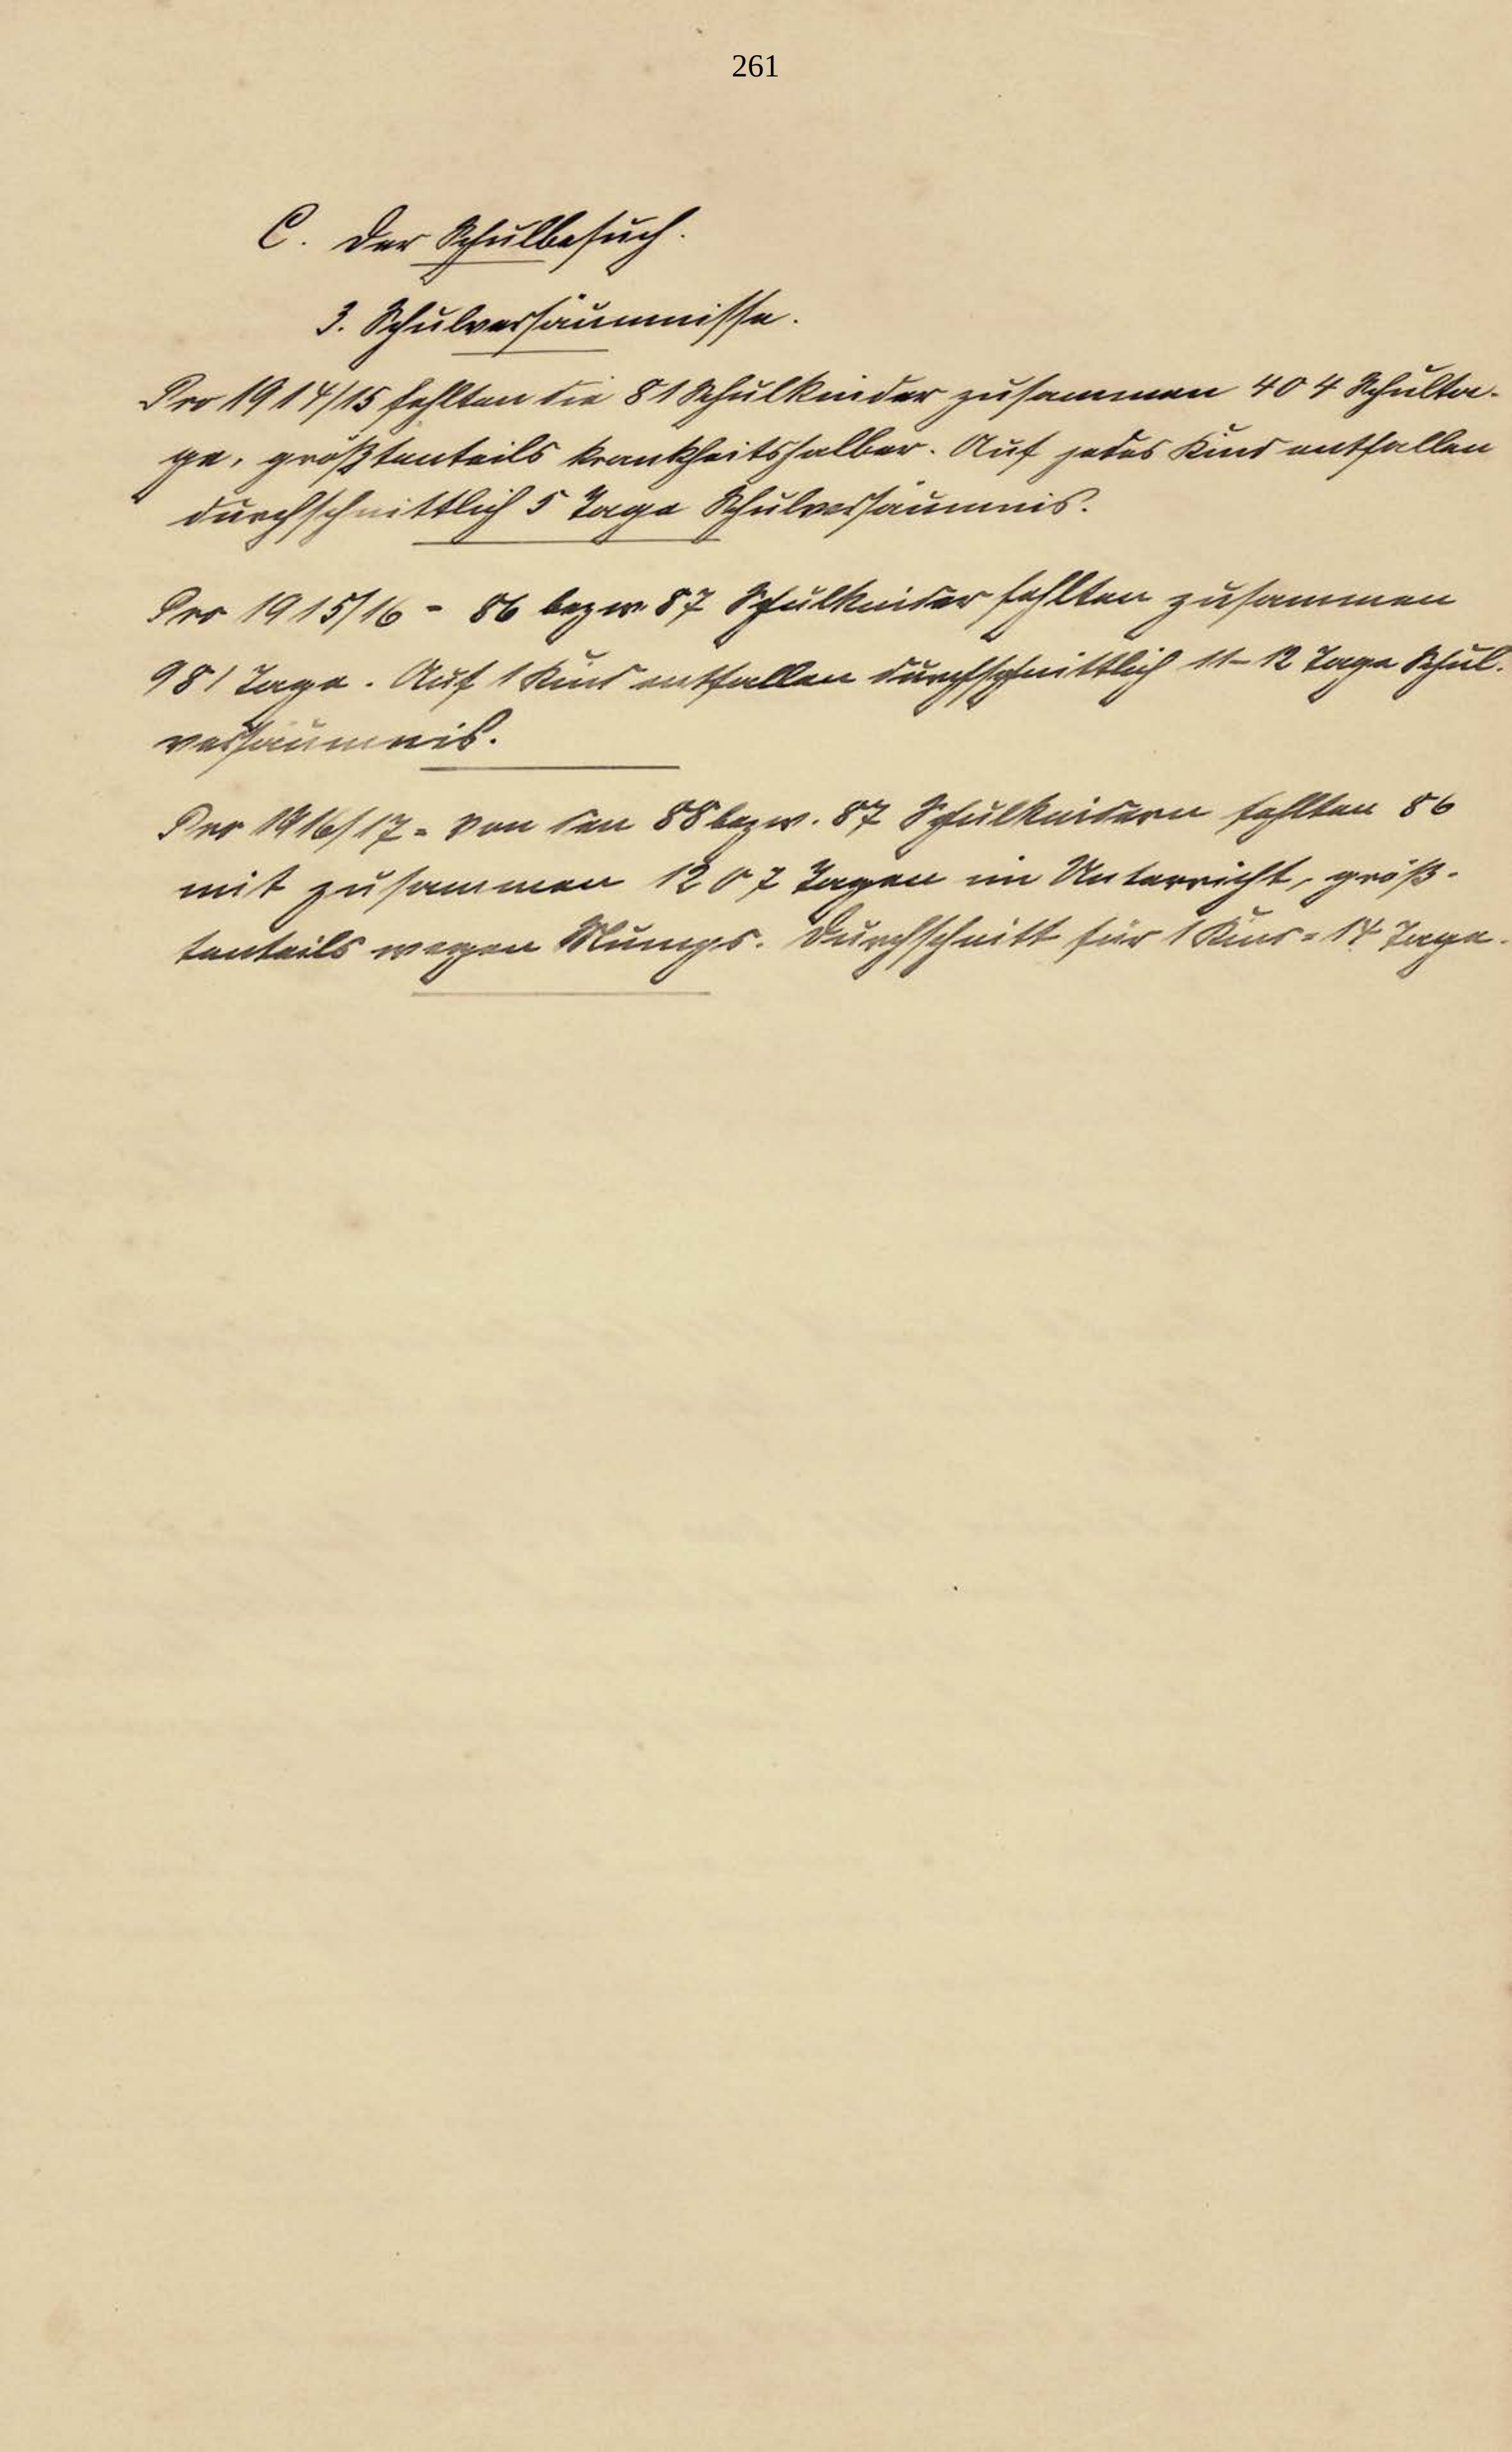 261
C. Der Schulbesuch.
3. Schulversäumnisse.
Pro 1914/15 fehlten die 81 Schulkinder zusammen 404 Schulta-
ge, größtenteils krankheitshalber. Auf jedes Kind entfallen
durchschnittlich 5 Tage Schulversäumnis.
Pro 1915/16 - 86 bezw. 87 Schulkinder fehlten zusammen
981 Tage. Auf 1 Kind entfallen durchschnittlich 11-12 Tage Schul-
versäumnis.
Pro 1916/17 = Von den 88 bezw. 87 Schulkindern fehlten 86
mit zusammen 1207 Tagen im Unterricht, größ-
tenteils wegen Mumps. Durchschnitt für 1 Kind = 14 Tage.